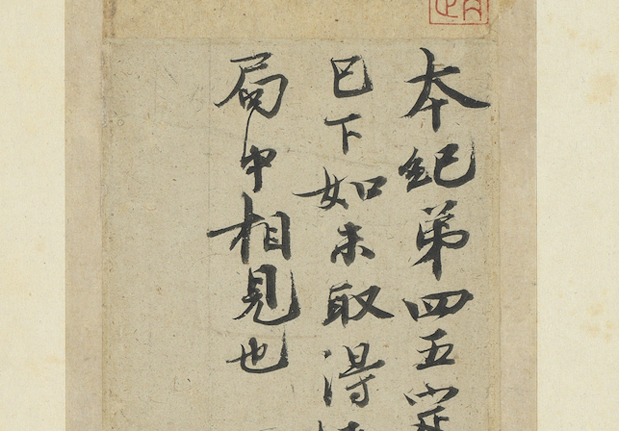 本紀第四五
已下如未取得
局中相見也